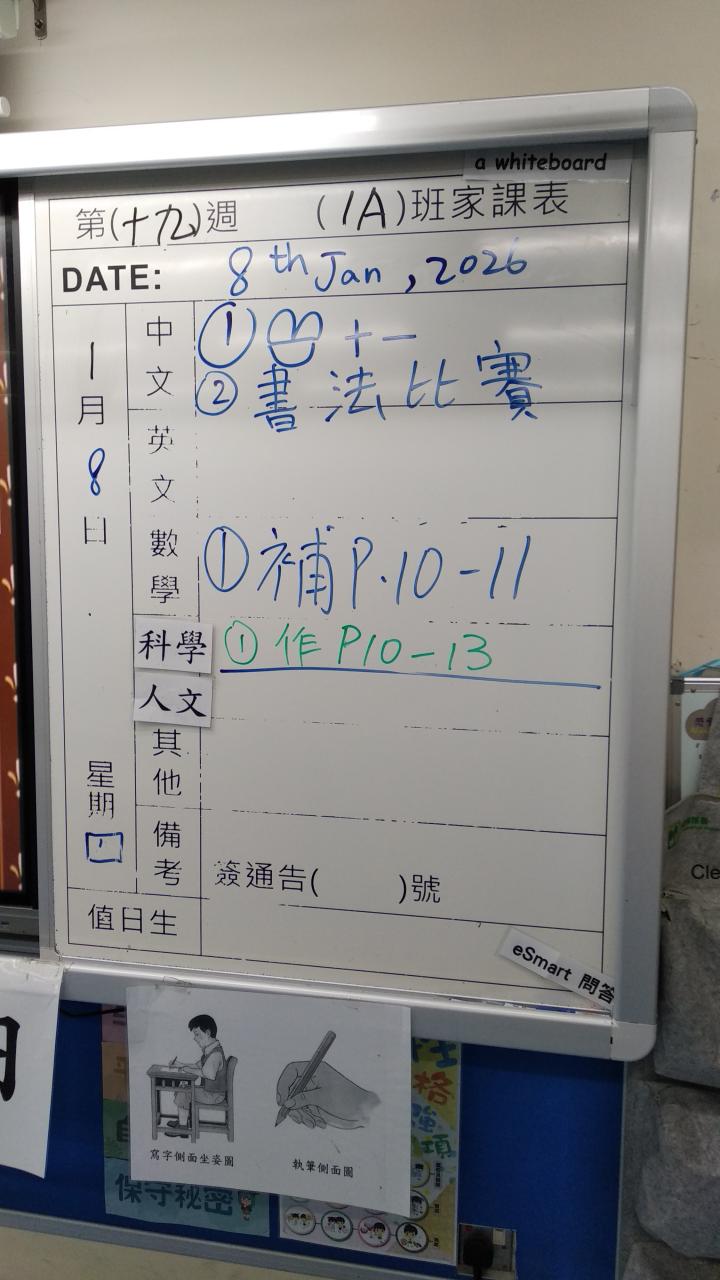 a whiteboard
第(十九)週 (1A)班家課表
DATE: 8th Jan, 2026
1月8日
星期
中文 ① 十一
② 書法比賽
英文
數學 ① 補P.10-11
科學 ① 作P10-13
人文
其他
備考 簽通告( )號
值日生
eSmart 問答
寫字側面坐姿圖
執筆側面圖
保守秘密
Cle